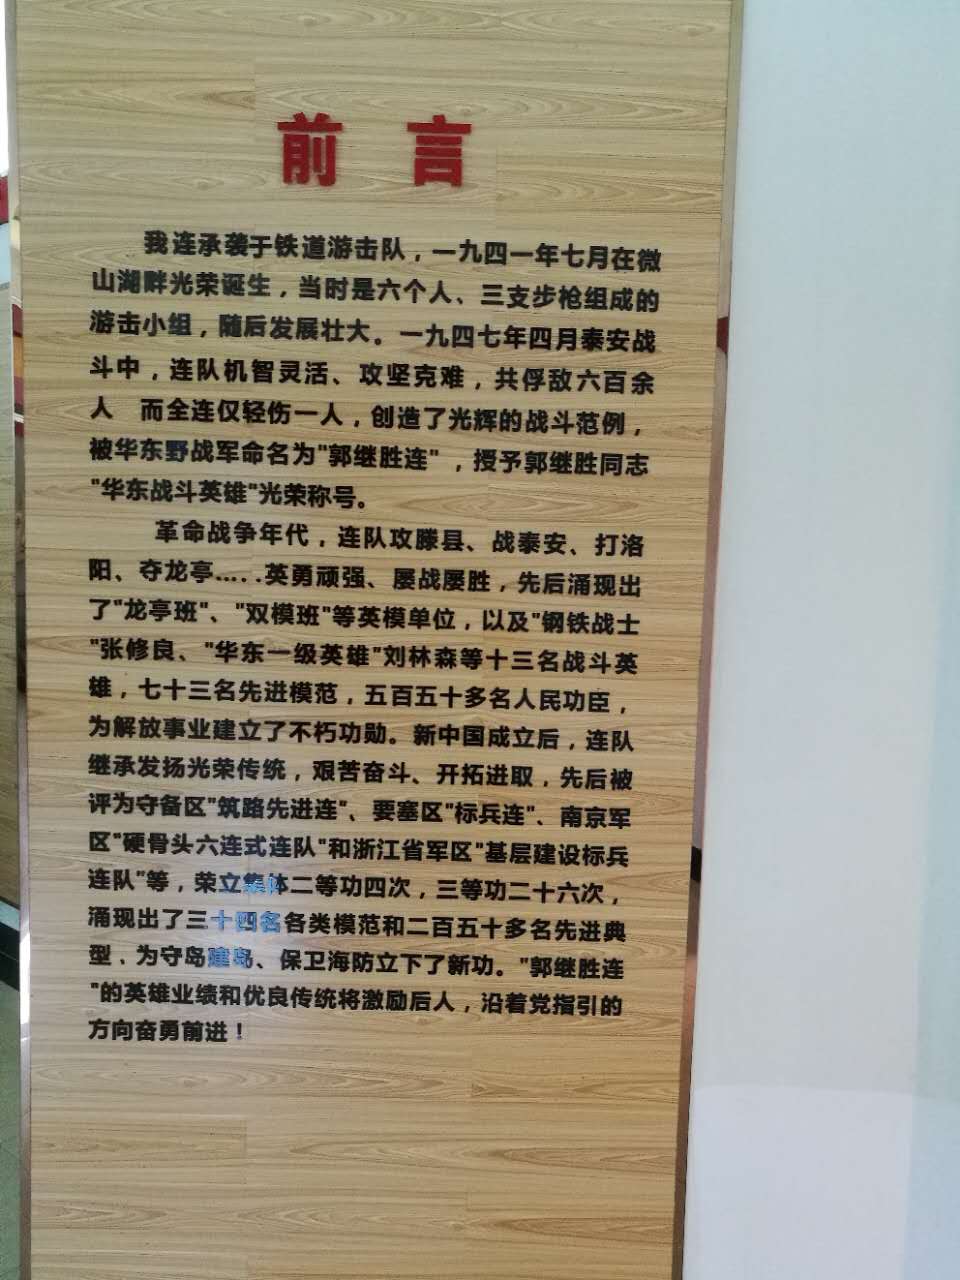 前言
我连承袭于铁道游击队，一九四一年七月在微
山湖畔光荣诞生，当时是六个人、三支步枪组成的
游击小组，随后发展壮大。一九四七年四月泰安战
斗中，连队机智灵活、攻坚克难，共俘敌六百余
人 而全连仅轻伤一人，创造了光辉的战斗范例，
被华东野战军命名为"郭继胜连"，授予郭继胜同志
"华东战斗英雄"光荣称号。
革命战争年代，连队攻滕县、战泰安、打洛
阳、夺龙亭.....英勇顽强、屡战屡胜，先后涌现出
了"龙亭班"、"双模班"等英模单位，以及"钢铁战士
"张修良、"华东一级英雄"刘林森等十三名战斗英
雄，七十三名先进模范，五百五十多名人民功臣，
为解放事业建立了不朽功勋。新中国成立后，连队
继承发扬光荣传统，艰苦奋斗、开拓进取，先后被
评为守备区"筑路先进连"、要塞区"标兵连"、南京军
区"硬骨头六连式连队"和浙江省军区"基层建设标兵
连队"等，荣立集体二等功四次，三等功二十六次，
涌现出了三十四名各类模范和二百五十多名先进典
型，为守岛建岛、保卫海防立下了新功。"郭继胜连
"的英雄业绩和优良传统将激励后人，沿着党指引的
方向奋勇前进！